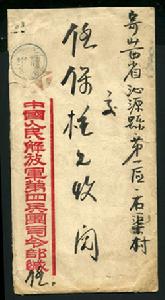 寄山西省沁源縣第一區石渠村
交
任保桂兄收閱
中國人民解放軍第四兵團司令部緘
任